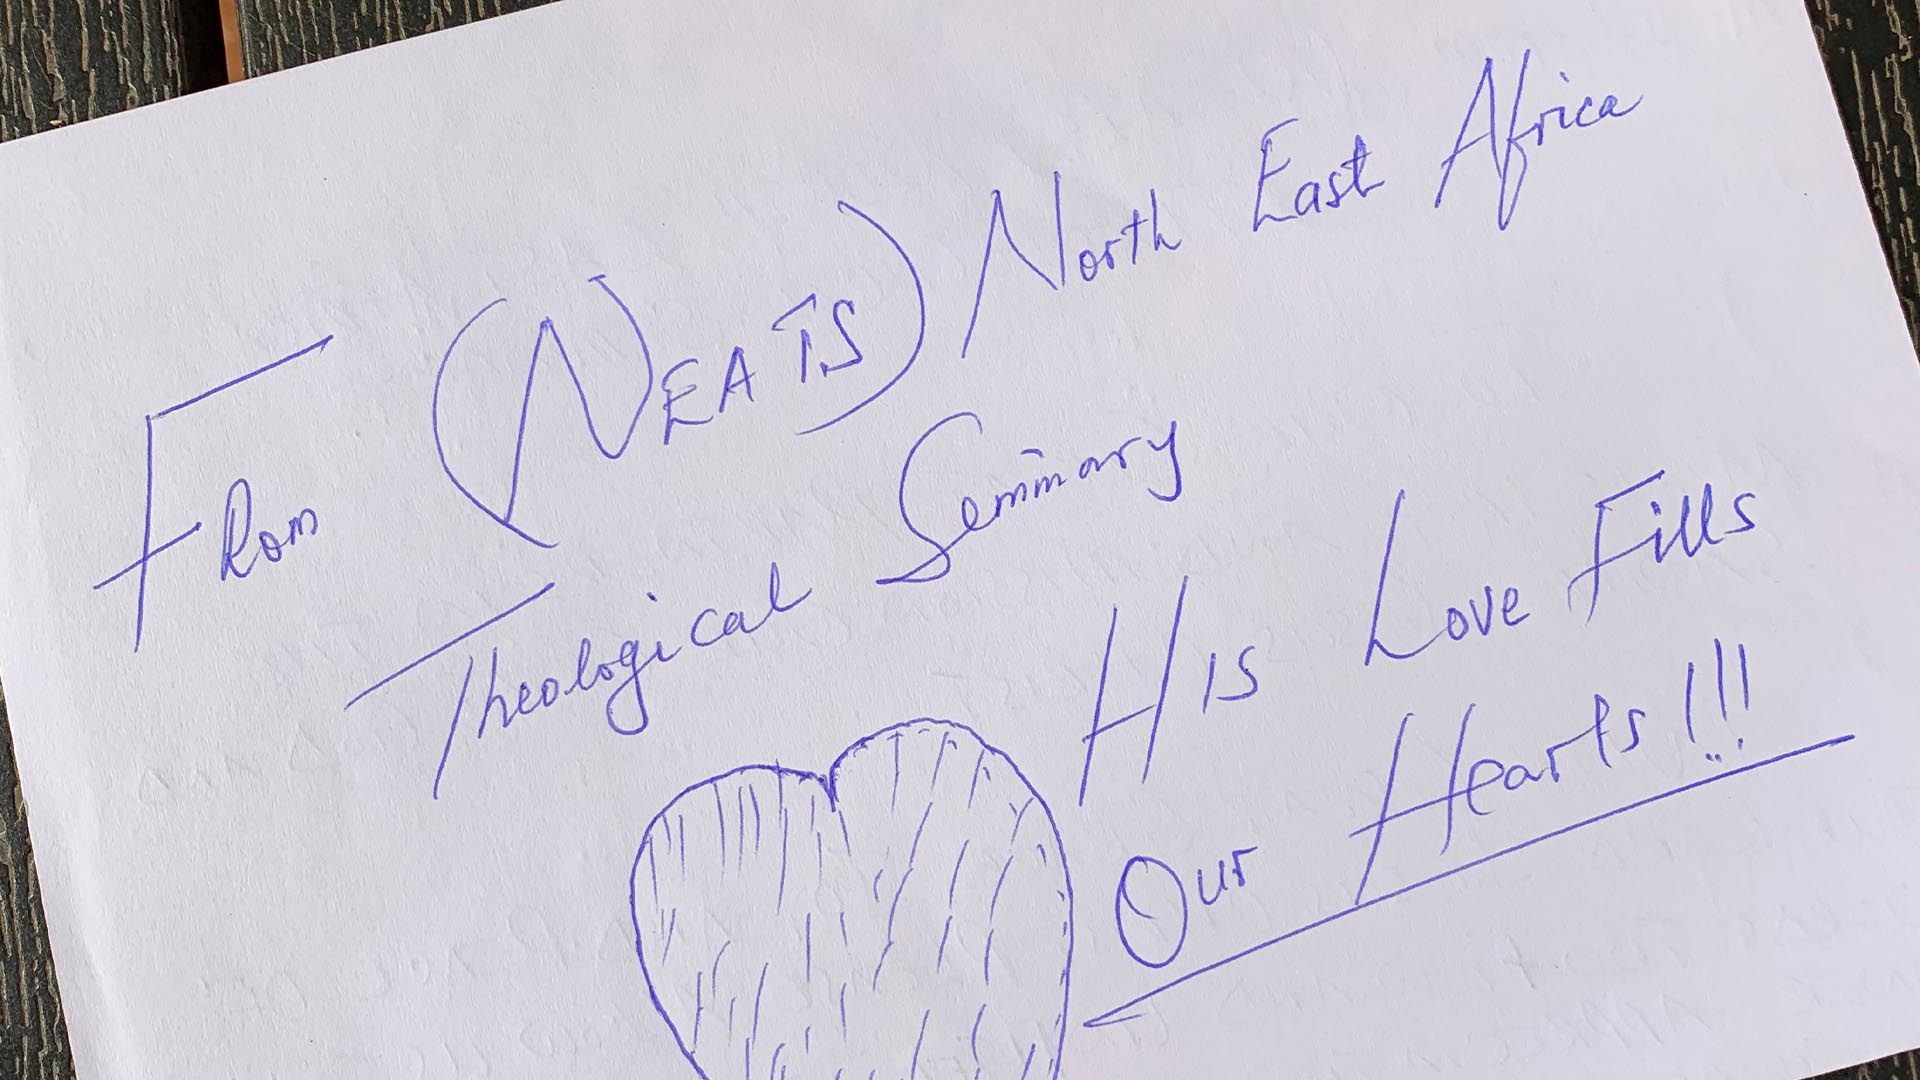 From (NEATS) North East Africa
Theological Seminary
His Love Fills
Our Hearts!!!